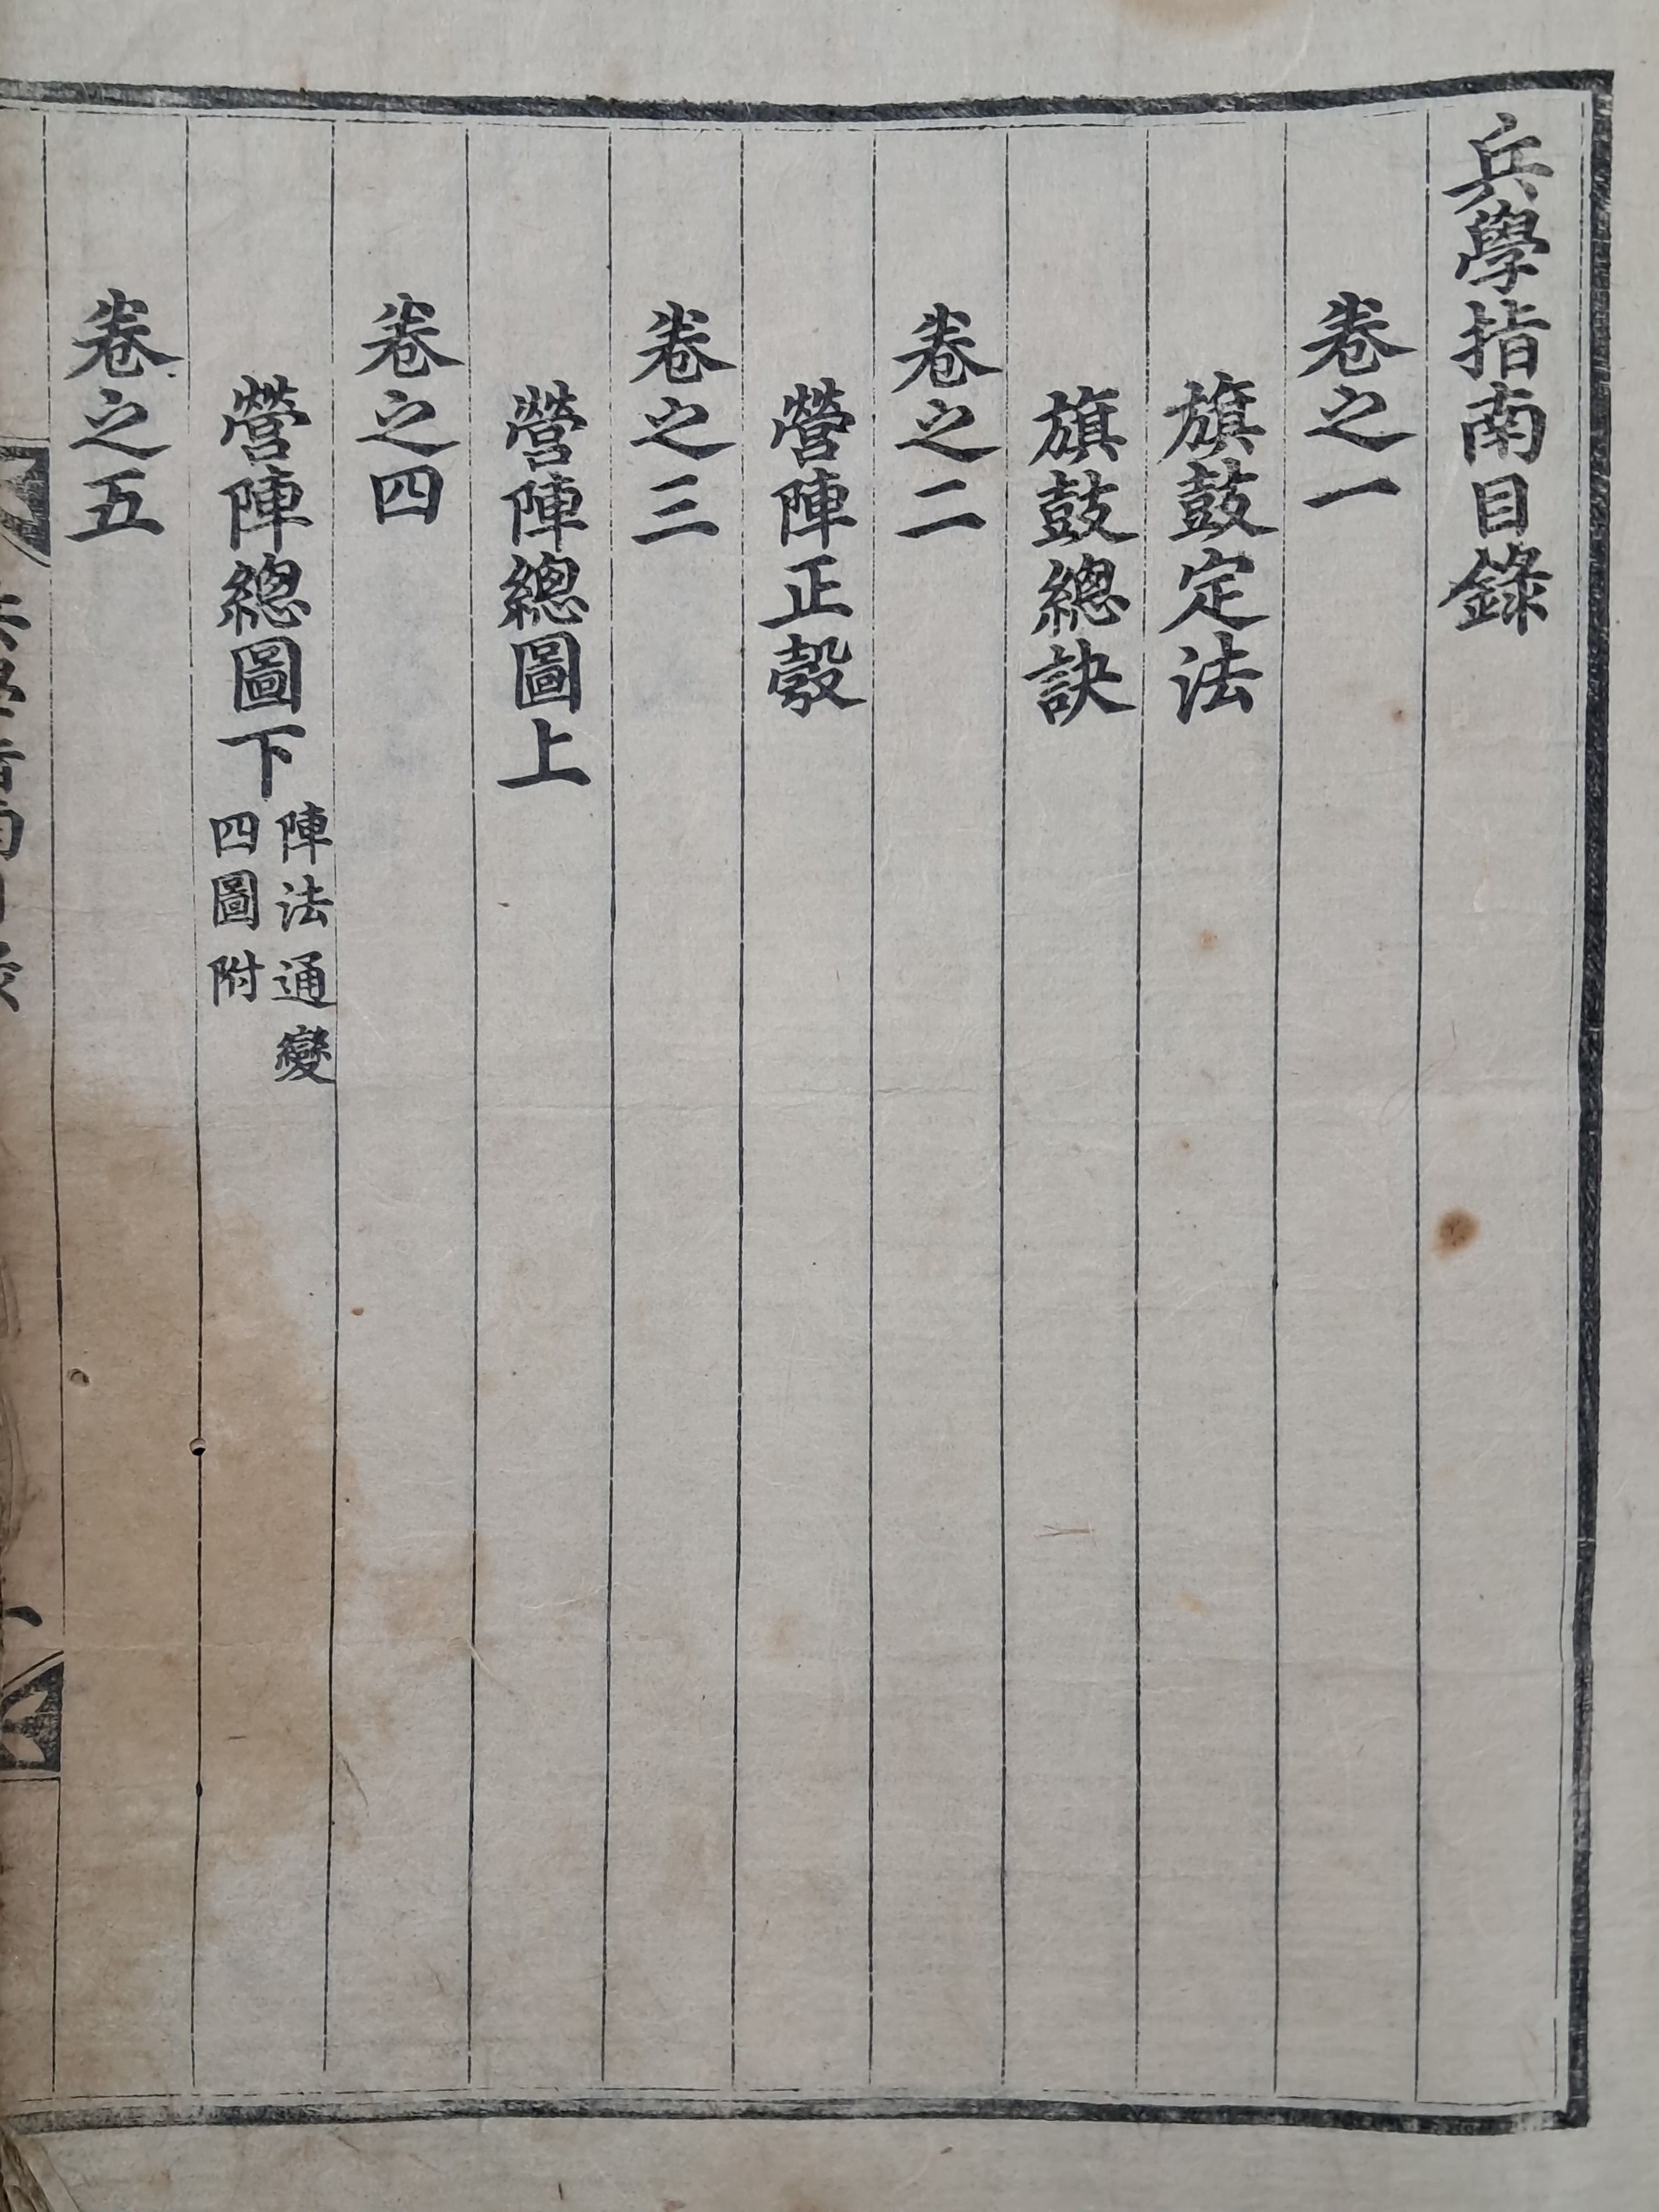 兵學指南目錄
卷之一
旗鼓定法
旗鼓總訣
卷之二
營陣正彀
卷之三
營陣總圖上
卷之四
營陣總圖下
陣法通變
四圖附
卷之五